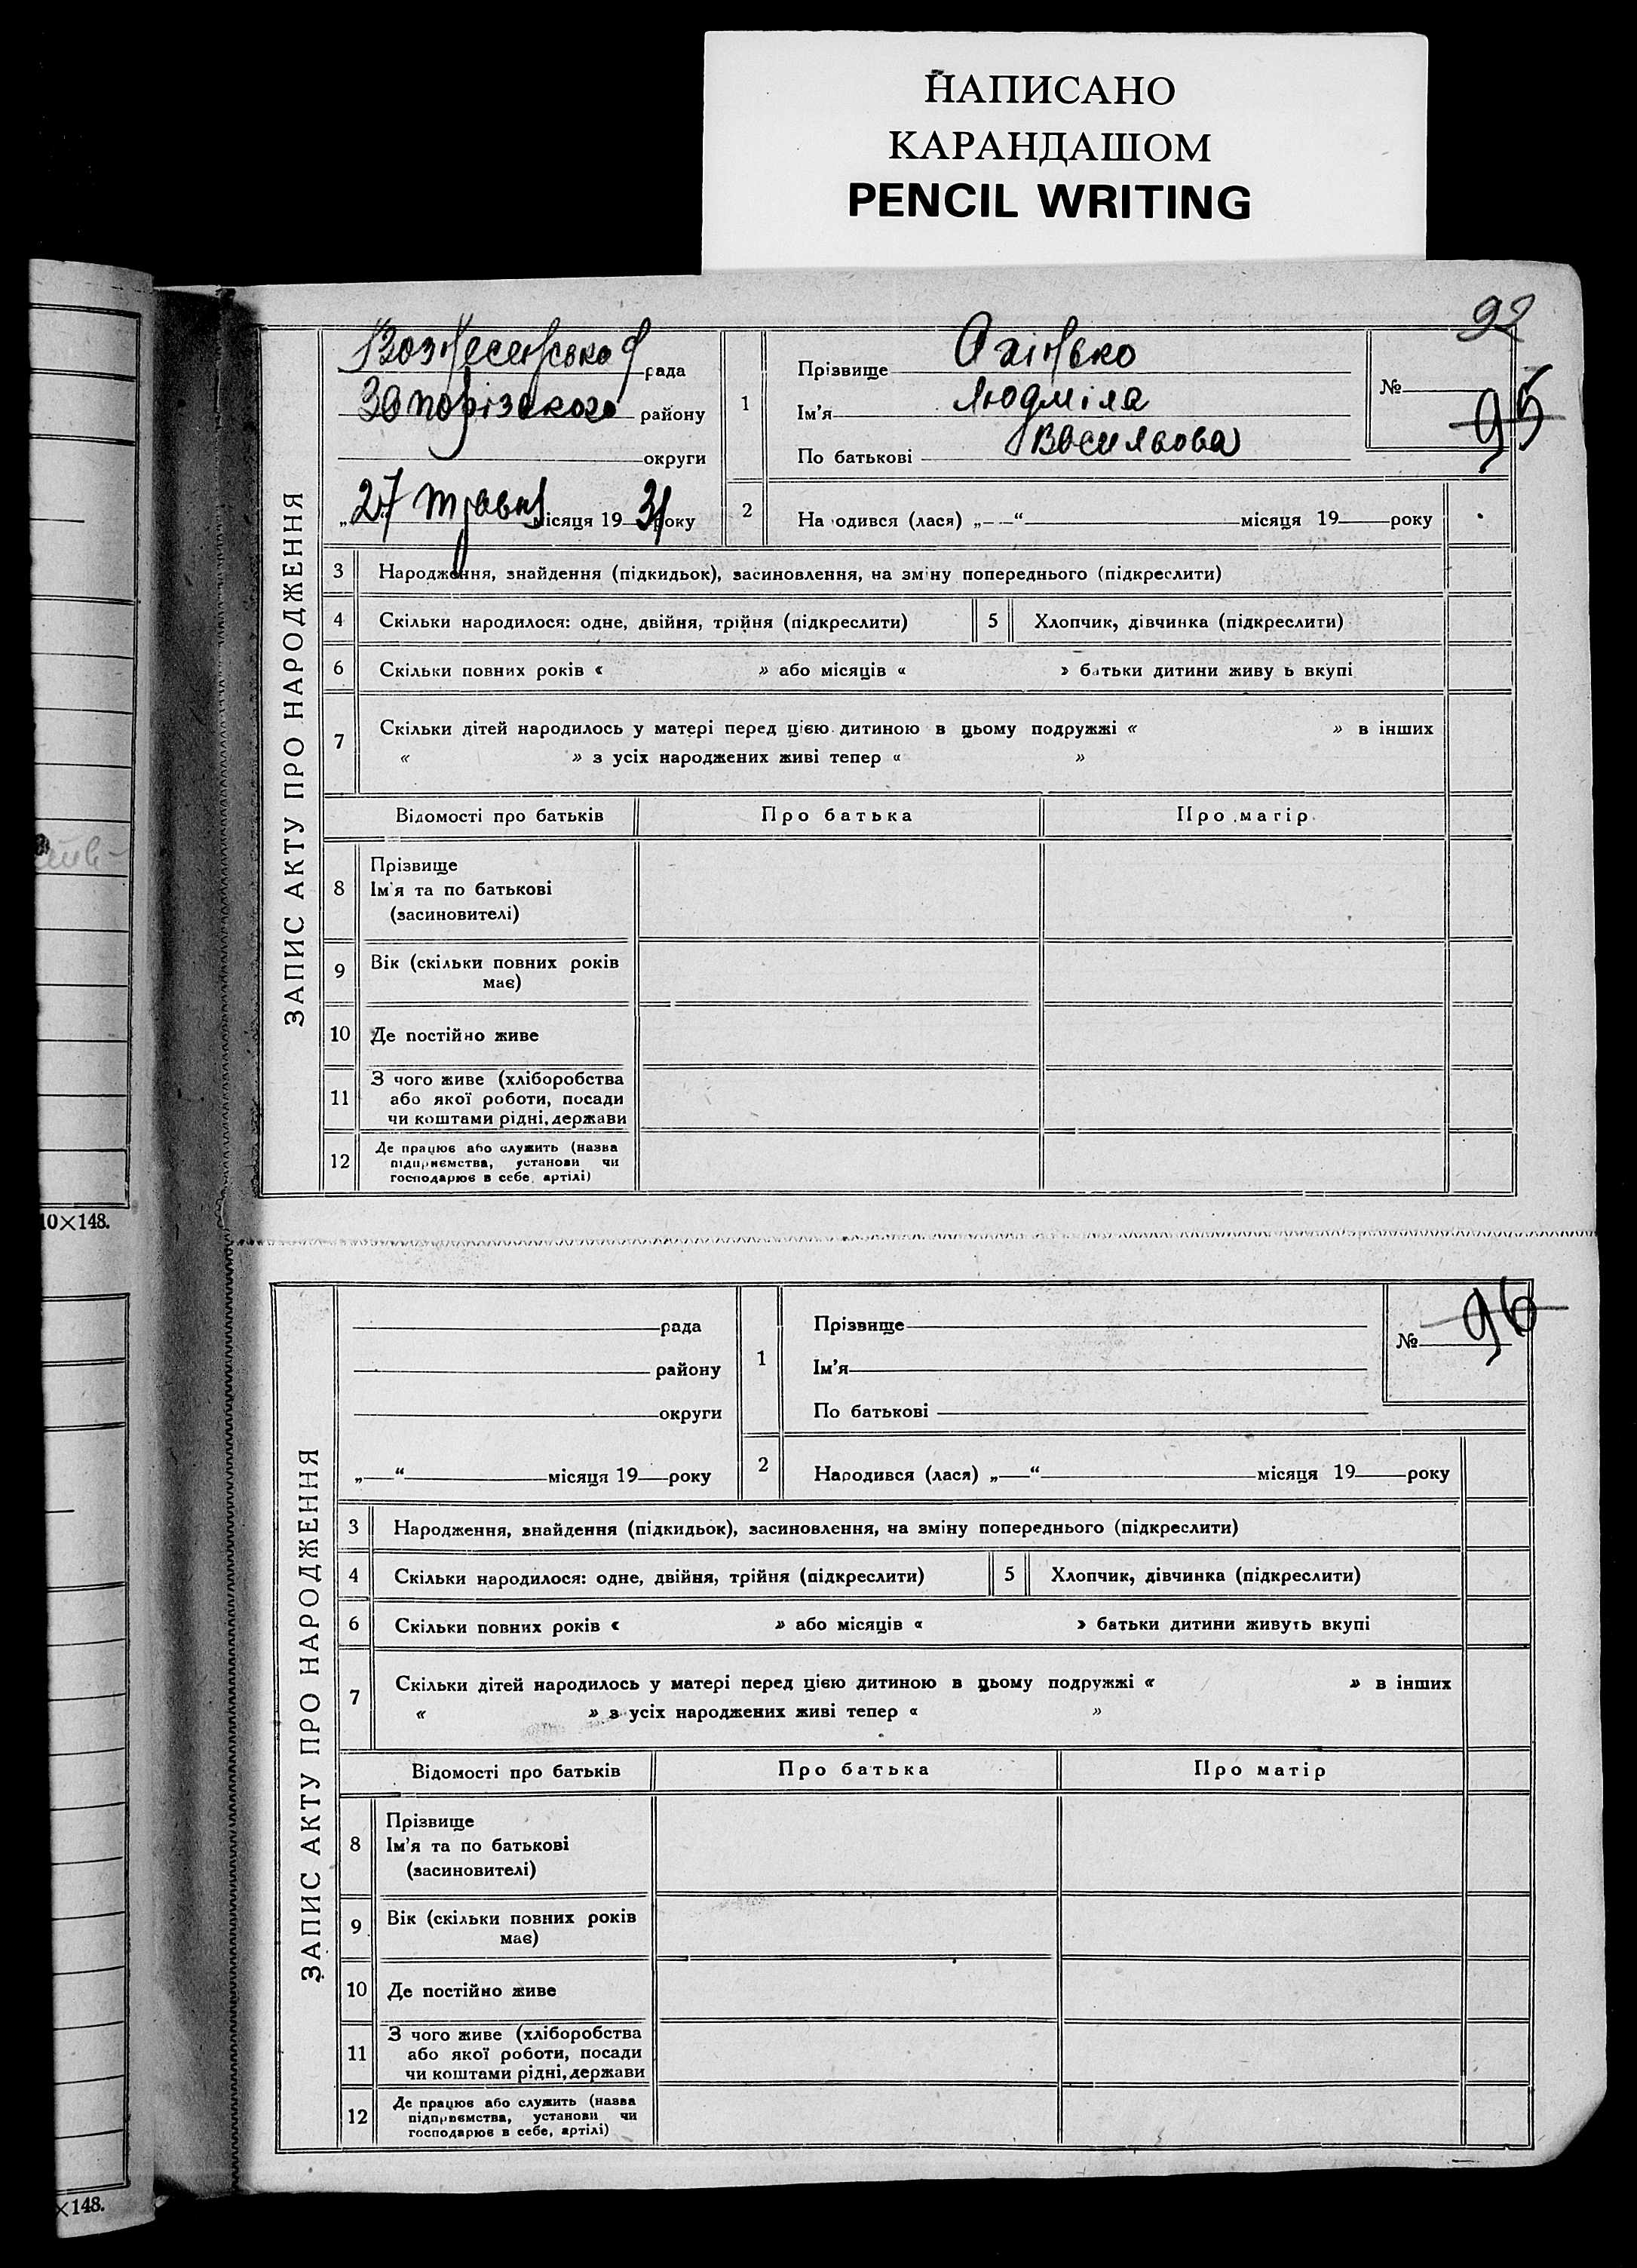 НАПИСАНО
КАРАНДАШОМ
PENCIL WRITING
92
ЗАПИС АКТУ ПРО НАРОДЖЕННЯ
Вознесенська рада
Запорізського району
округи
27 травня місяця 19 31 року
1
Прізвище Охінько
Ім'я Людміла
По батькові Васильова
№ 95
2
На одився (лася) „ — “ місяця 19 року
3 Народження, знайдення (підкидьок), засиновлення, на зміну попереднього (підкреслити)
4 Скільки народилося: одне, двійня, трійня (підкреслити) 5 Хлопчик, дівчинка (підкреслити)
6 Скільки повних років « » або місяців « » батьки дитини живу ь вкупі
7 Скільки дітей народилось у матері перед цією дитиною в цьому подружжі « » в інших
« » з усіх народжених живі тепер « »
Відомості про батьків Про батька Про матір
8 Прізвище
Ім'я та по батькові
(засиновителі)
9 Вік (скільки повних років
має)
10 Де постійно живе
11 З чого живе (хліборобства
або якої роботи, посади
чи коштами рідні, держави
12 Де працює або служить (назва
підприємства, установи чи
господарює в себе, артілі)
10×148.
ЗАПИС АКТУ ПРО НАРОДЖЕННЯ
рада
району
округи
„ — “ місяця 19 року
1
Прізвище
Ім'я
По батькові
№ 96
2
Народився (лася) „ — “ місяця 19 року
3 Народження, знайдення (підкидьок), засиновлення, на зміну попереднього (підкреслити)
4 Скільки народилося: одне, двійня, трійня (підкреслити) 5 Хлопчик, дівчинка (підкреслити)
6 Скільки повних років « » або місяців « » батьки дитини живуть вкупі
7 Скільки дітей народилось у матері перед цією дитиною в цьому подружжі « » в інших
« » з усіх народжених живі тепер « »
Відомості про батьків Про батька Про матір
8 Прізвище
Ім'я та по батькові
(засиновителі)
9 Вік (скільки повних років
має)
10 Де постійно живе
11 З чого живе (хліборобства
або якої роботи, посади
чи коштами рідні, держави
12 Де працює або служить (назва
підприємства, установи чи
господарює в себе, артілі)
×148.